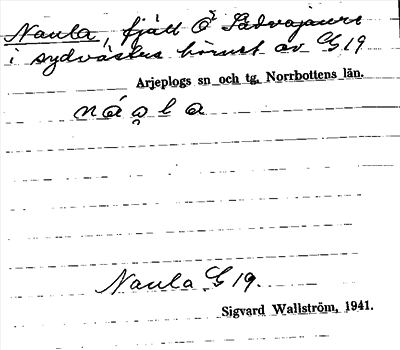 Naula, fjäll Ö Sädvajaure
i sydvästra hörnet av G 19
Arjeplogs sn och tg, Norrbottens län.
náo̭la
Naula G 19.
Sigvard Wallström, 1941.